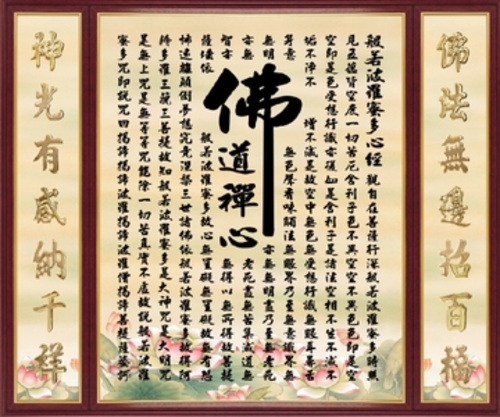 佛法無邊招百福
般若波羅蜜多心經 觀自在菩薩行深般若波羅蜜多時照
見五蘊皆空度一切苦厄舍利子色不異空空不異色色即是空
空即是色受想行識亦復如是舍利子是諸法空相不生不滅不
垢不淨不 增不減是故空中無色無受想行識無眼耳鼻舌
身意 無色聲香味觸法無眼界乃至無意識界無
無明 亦無無明盡乃至無老死
亦無 老死盡無苦集滅道無
智亦 無得以無所得故菩提
薩埵依 般若波羅蜜多故心無罣礙無罣礙故無有恐
怖遠離顛倒夢想究竟涅槃三世諸佛依般若波羅蜜多故得阿
耨多羅三藐三菩提故知般若波羅蜜多是大神咒是大明咒
是無上咒是無等等咒能除一切苦真實不虛故說般若波羅
蜜多咒即說咒曰揭諦揭諦波羅揭諦波羅僧揭諦菩提薩婆訶
佛道禪心
神光有感納千祥